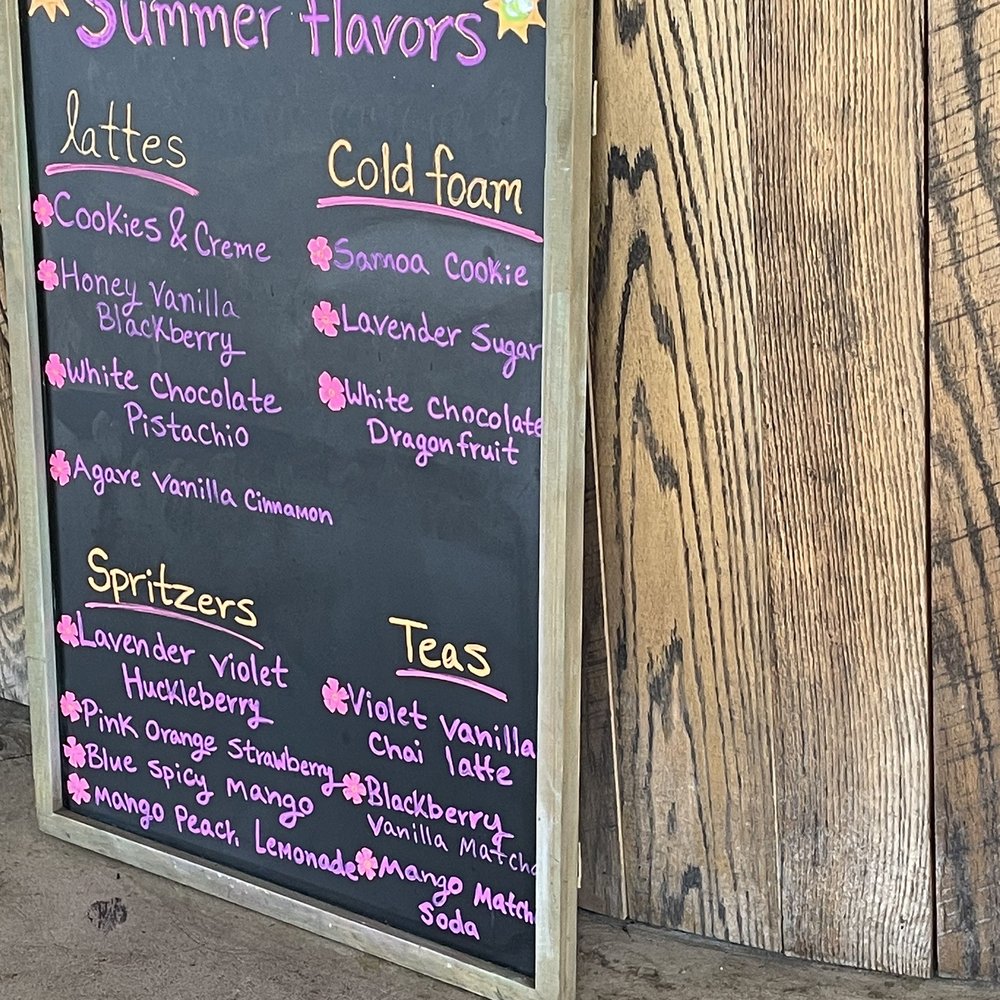 Summer flavors
lattes
Cookies & Creme
Honey Vanilla
Blackberry
White Chocolate
Pistachio
Agave Vanilla Cinnamon
Cold foam
Samoa Cookie
Lavender Sugar
White Chocolate
Dragonfruit
Spritzers
Lavender violet
Huckleberry
Pink Orange Strawberry
Blue Spicy Mango
Mango Peach Lemonade
Teas
Violet Vanilla
Chai latte
Blackberry
Vanilla Matcha
Mango Matcha
Soda